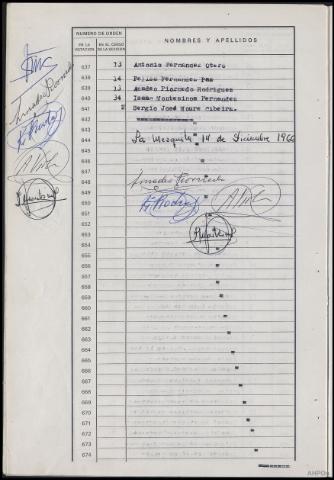 NUMERO DE ORDEN
NOMBRES Y APELLIDOS
DE LA VOTACION
EN EL CENSO DE LA SECCION
637 13 Antonio Fernández Otero
638 14 Felisa Fernandez Paz
639 13 Amadeo Piornedo Rodriguez
640 34 Isaac Montesinos Fernandez
641 2 Sergio José Moure Ribeira.
642
643
644 La Mezquita 14 de Diciembre 1966
645
646
647
648 Amadeo Piornedo
649
650
651
652
653
654
655
656
657
658
659
660
661
662
663
664
665
666
667
668
669
670
671
672
673
674
AHPOu